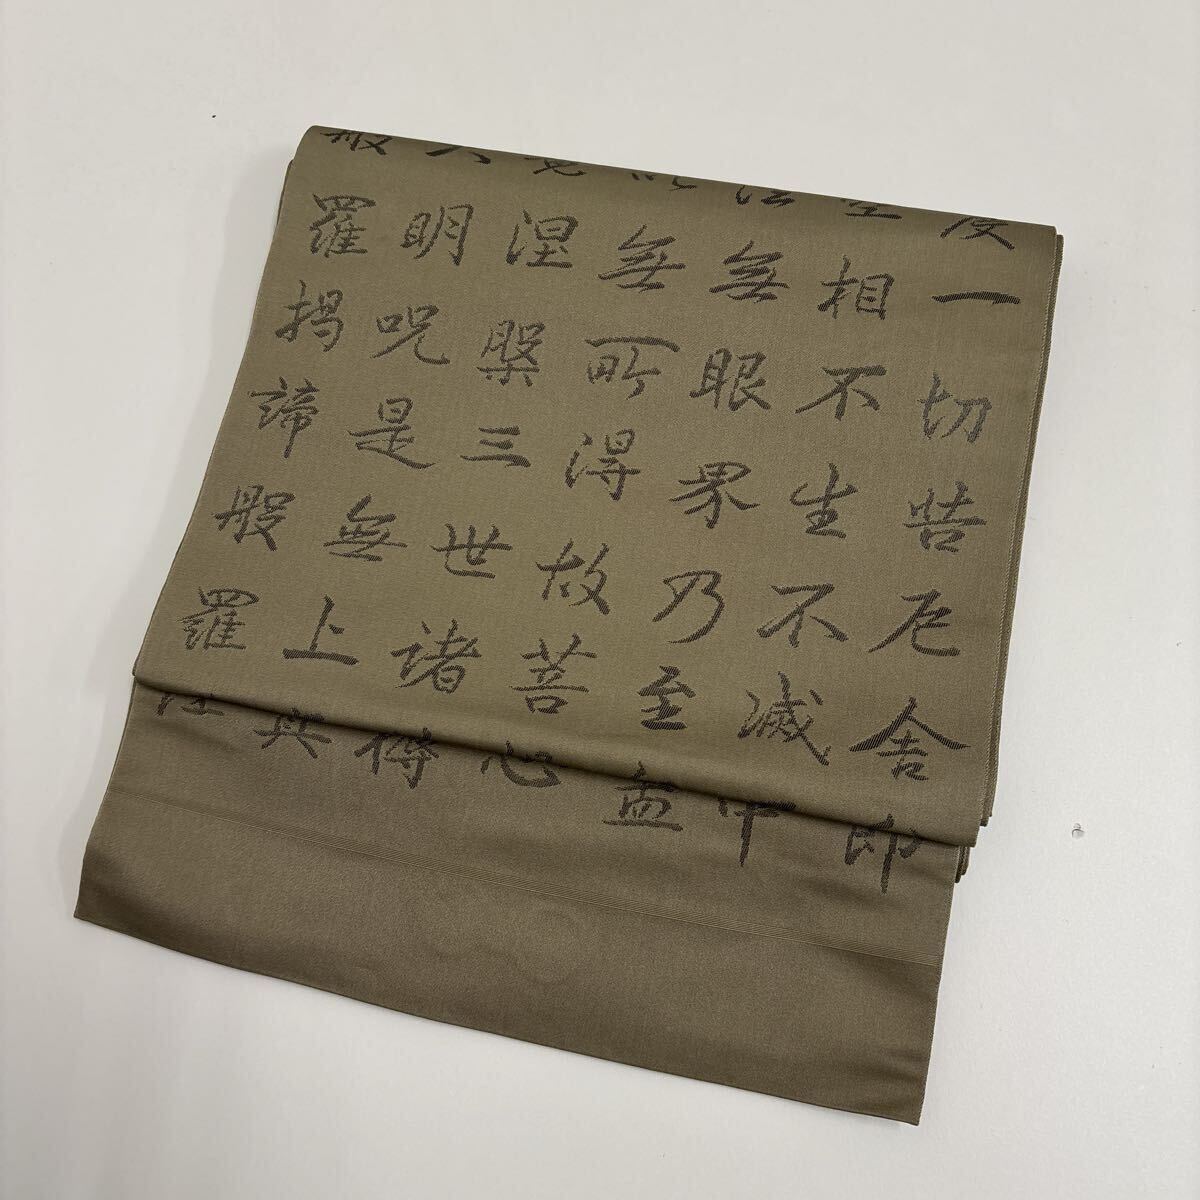 度一切苦厄舍
空相不生不滅中
法無眼界乃至
無所得故菩心
涅槃三世諸
明呪是無上
般羅揭諦般羅